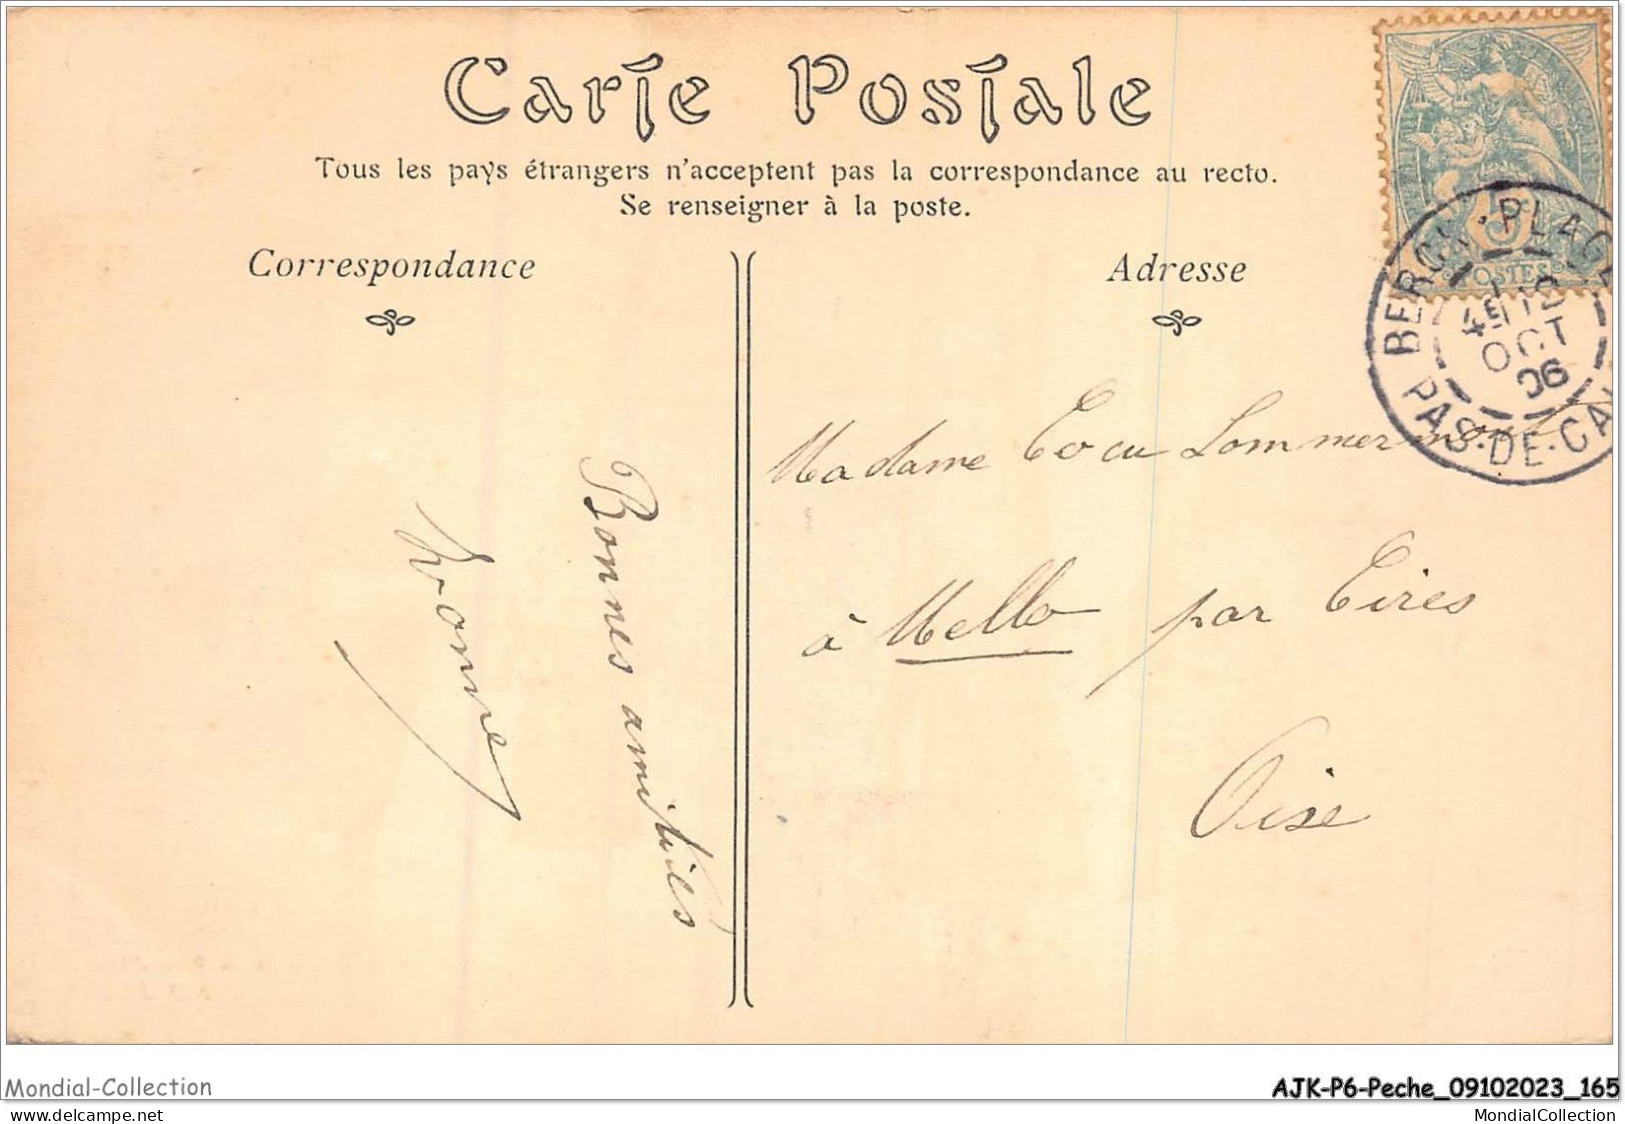 Carte Postale
Tous les pays étrangers n'acceptent pas la correspondance au recto.
Se renseigner à la poste.
Correspondance
Adresse
5c
POSTES
BERCK-PLAGE
4E 12
OCT
06
PAS-DE-CAL
Bonnes amitiés
Yvonne
Madame
à Mello par Cires
Oise
Mondial-Collection
AJK-P6-Peche_09102023_165
www.delcampe.net
MondialCollection